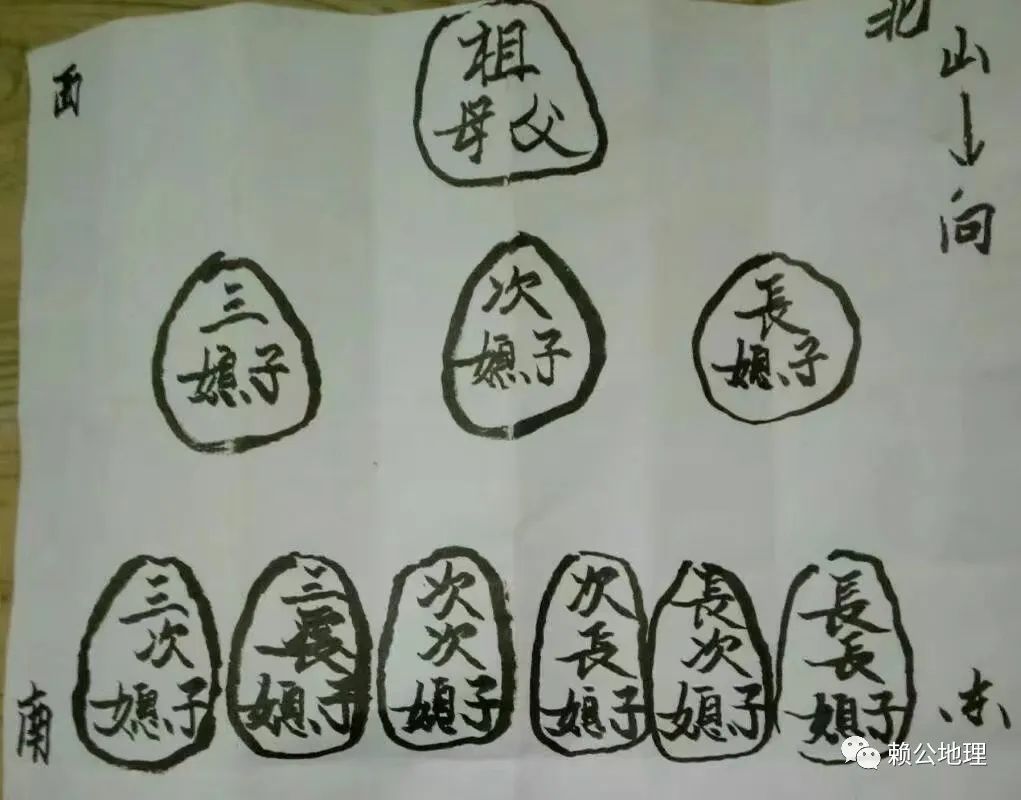 北
山
↓
向
西
祖
父母
長
子媳
次
子媳
三
子媳
長
長
子媳
長
次
子媳
次
長
子媳
次
次
子媳
三
長
子媳
三
次
子媳
东
南
赖公地理